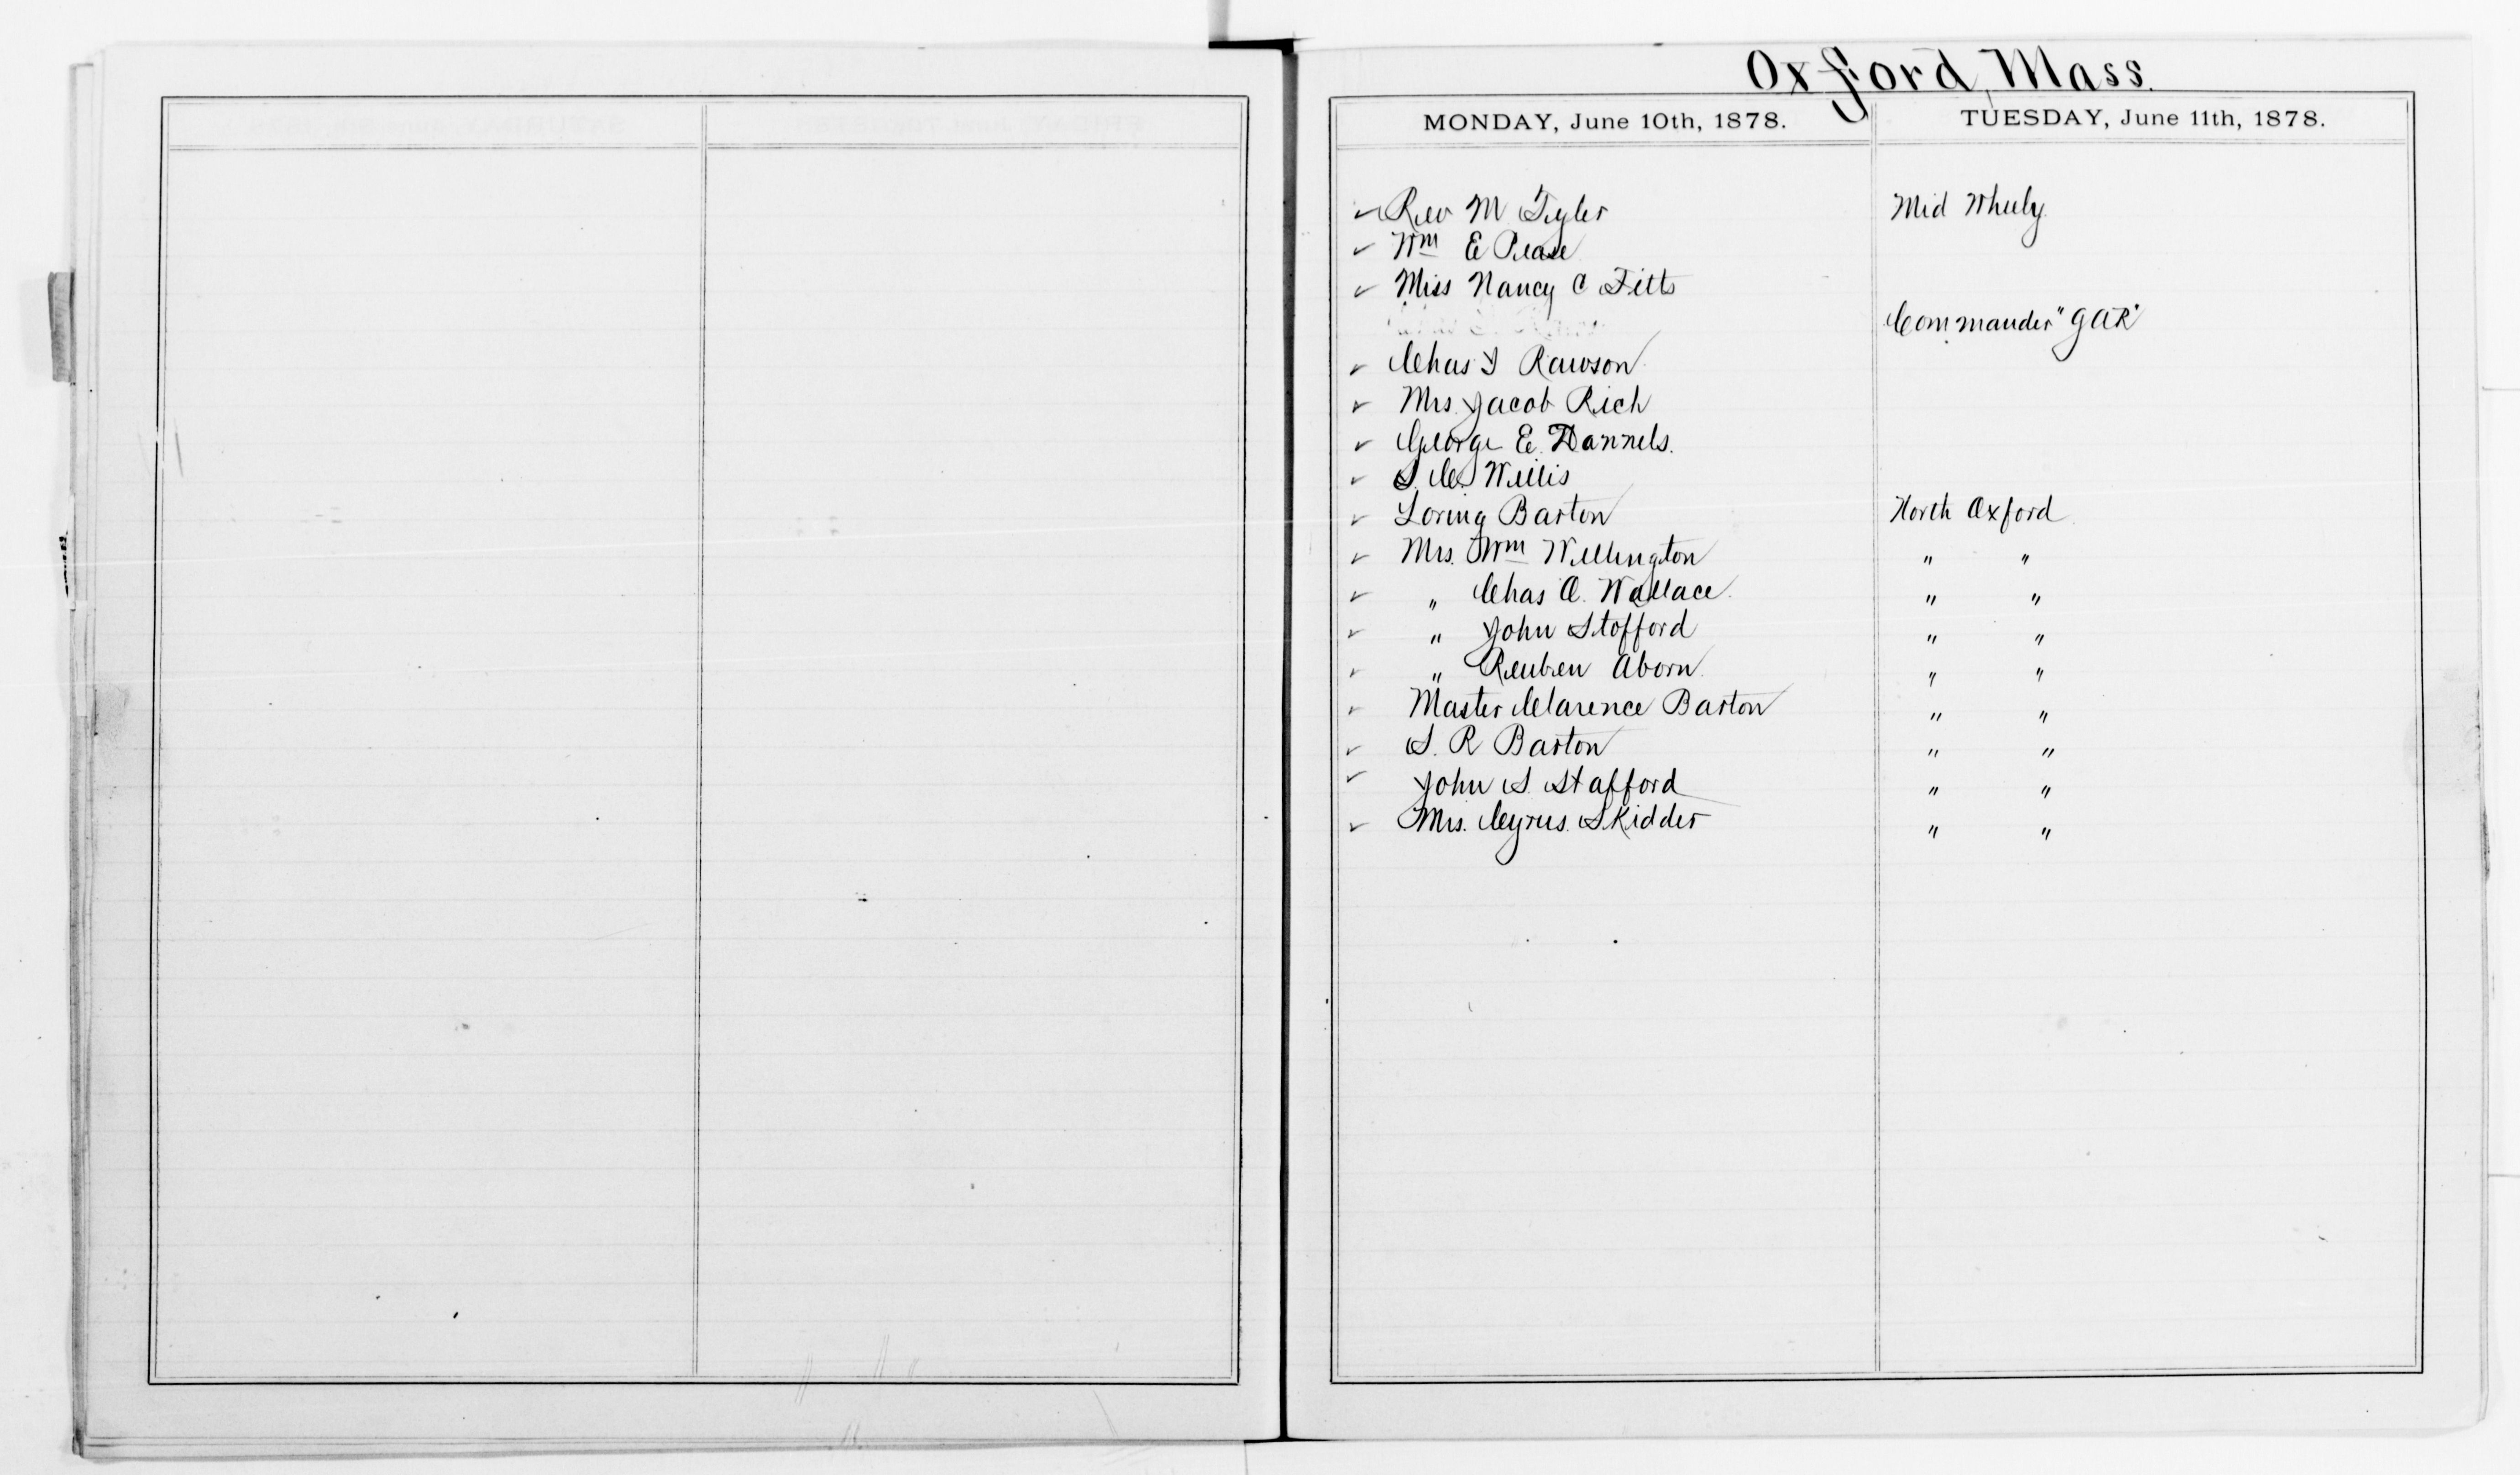 Oxford, Mass.
MONDAY, June 10th, 1878. TUESDAY, June 11th, 1878.
Rev M Tyler Mid Wheely
Wm E Pease
Miss Nancy C Fitts
Commander "GAR"
Chas I Rawson
Mrs. Jacob Rich
George E. Dannels.
S. C. Willis
Loring Barton North Oxford
Mrs. Wm Wellington " "
" Chas A. Wallace. " "
" John Stofford " "
" Reuben Aborn " "
Master Clarence Barton " "
S. R Barton " "
John S. Stafford " "
Mrs. Cyrus Skidder " "